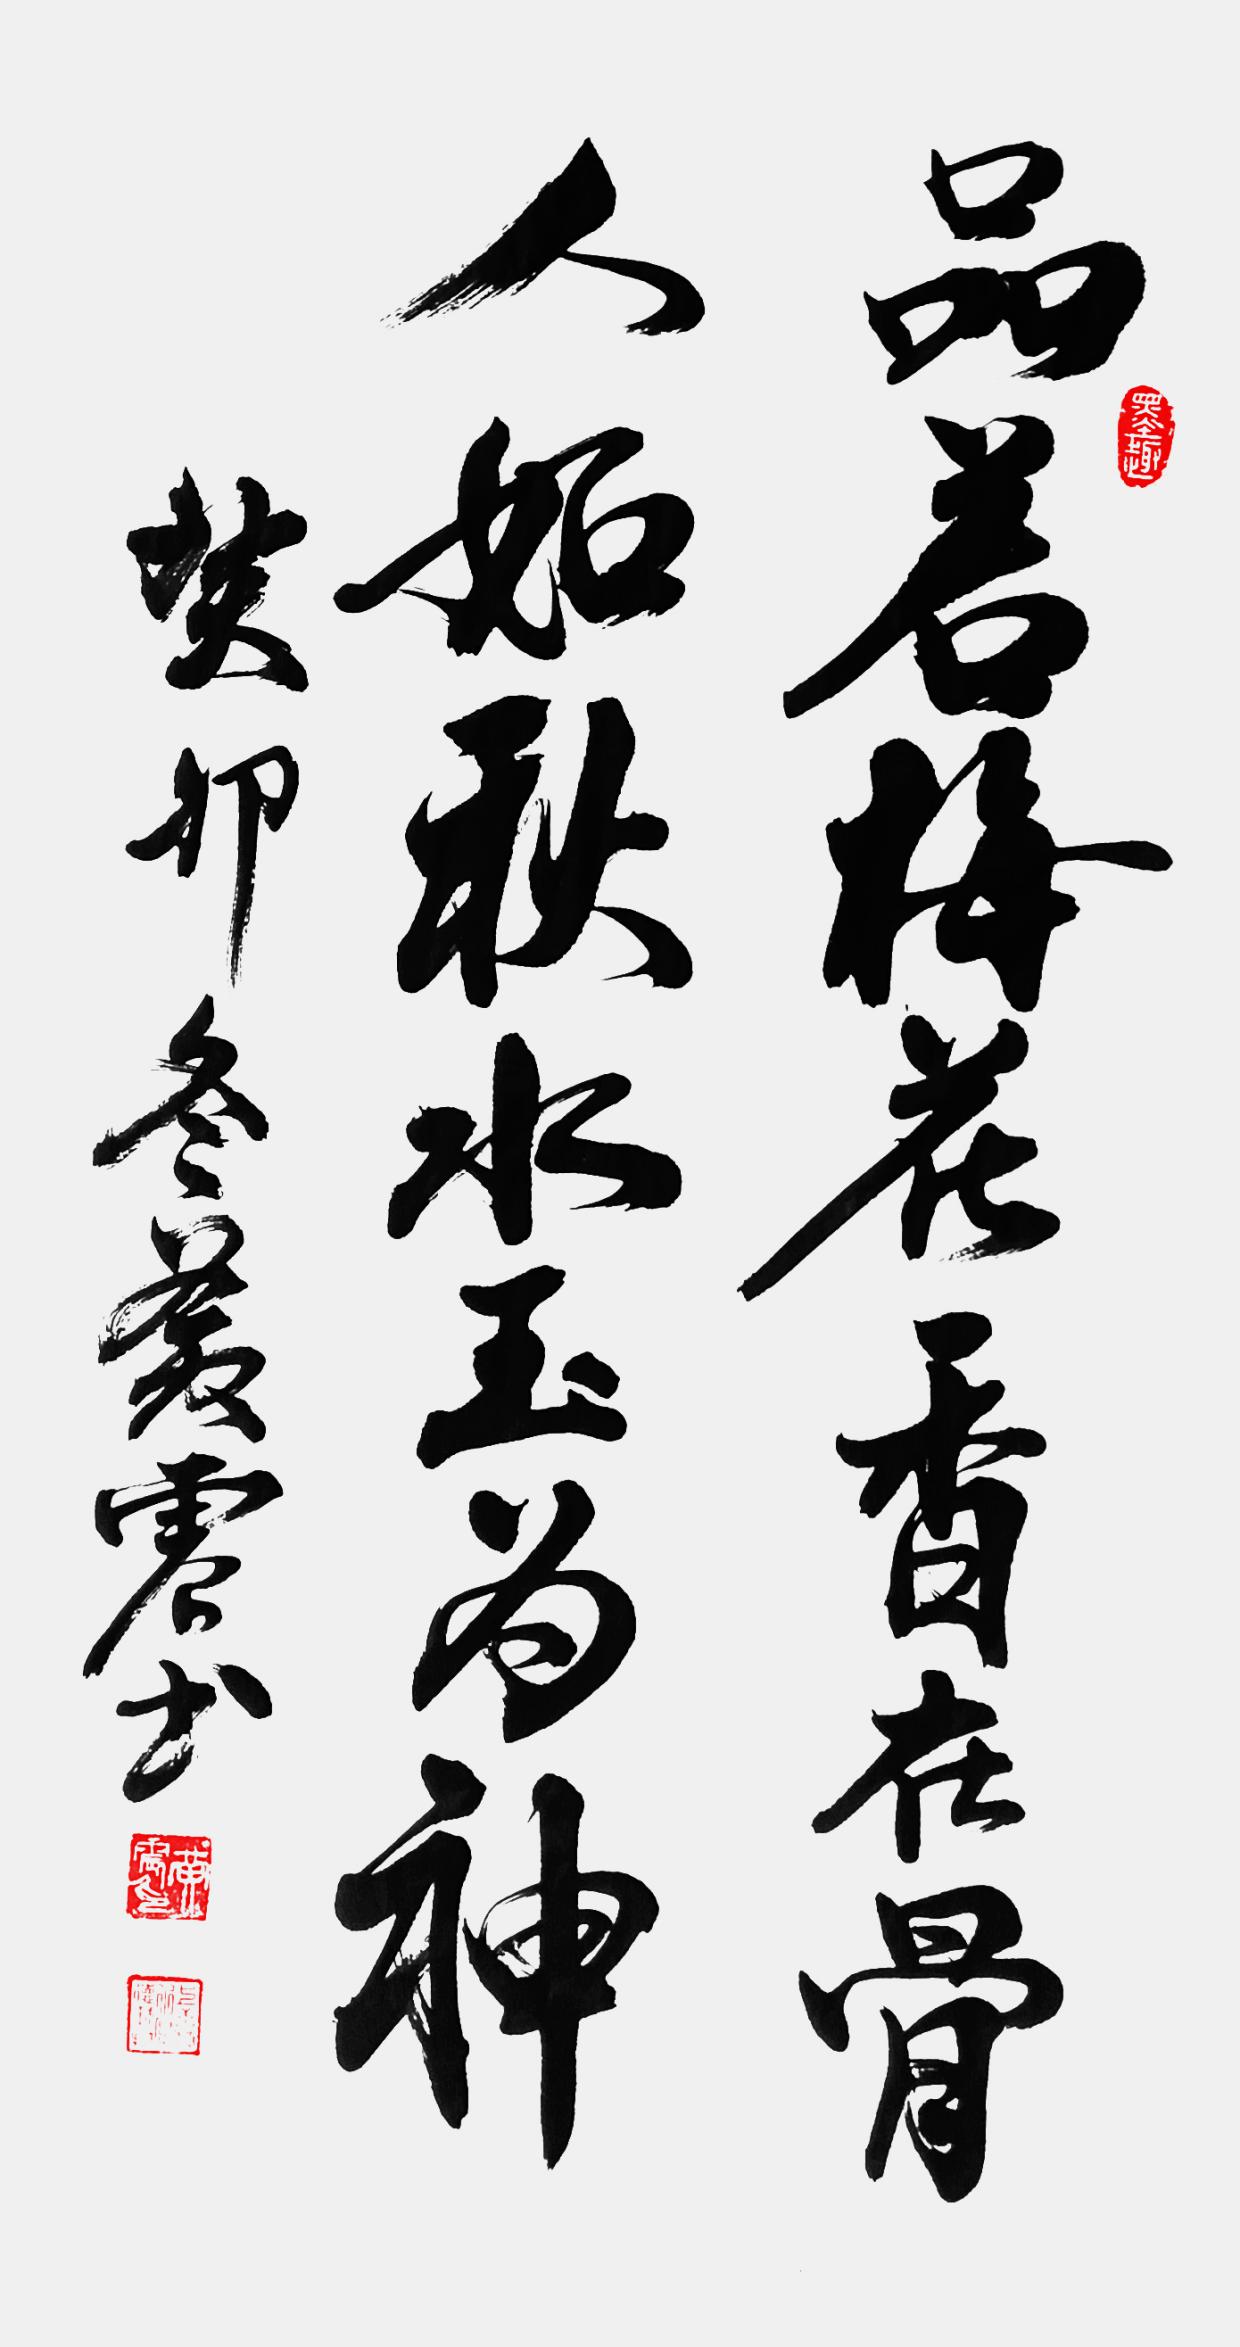 品若梅花香在骨
人如秋水玉为神
癸卯冬黄震书
墨趣